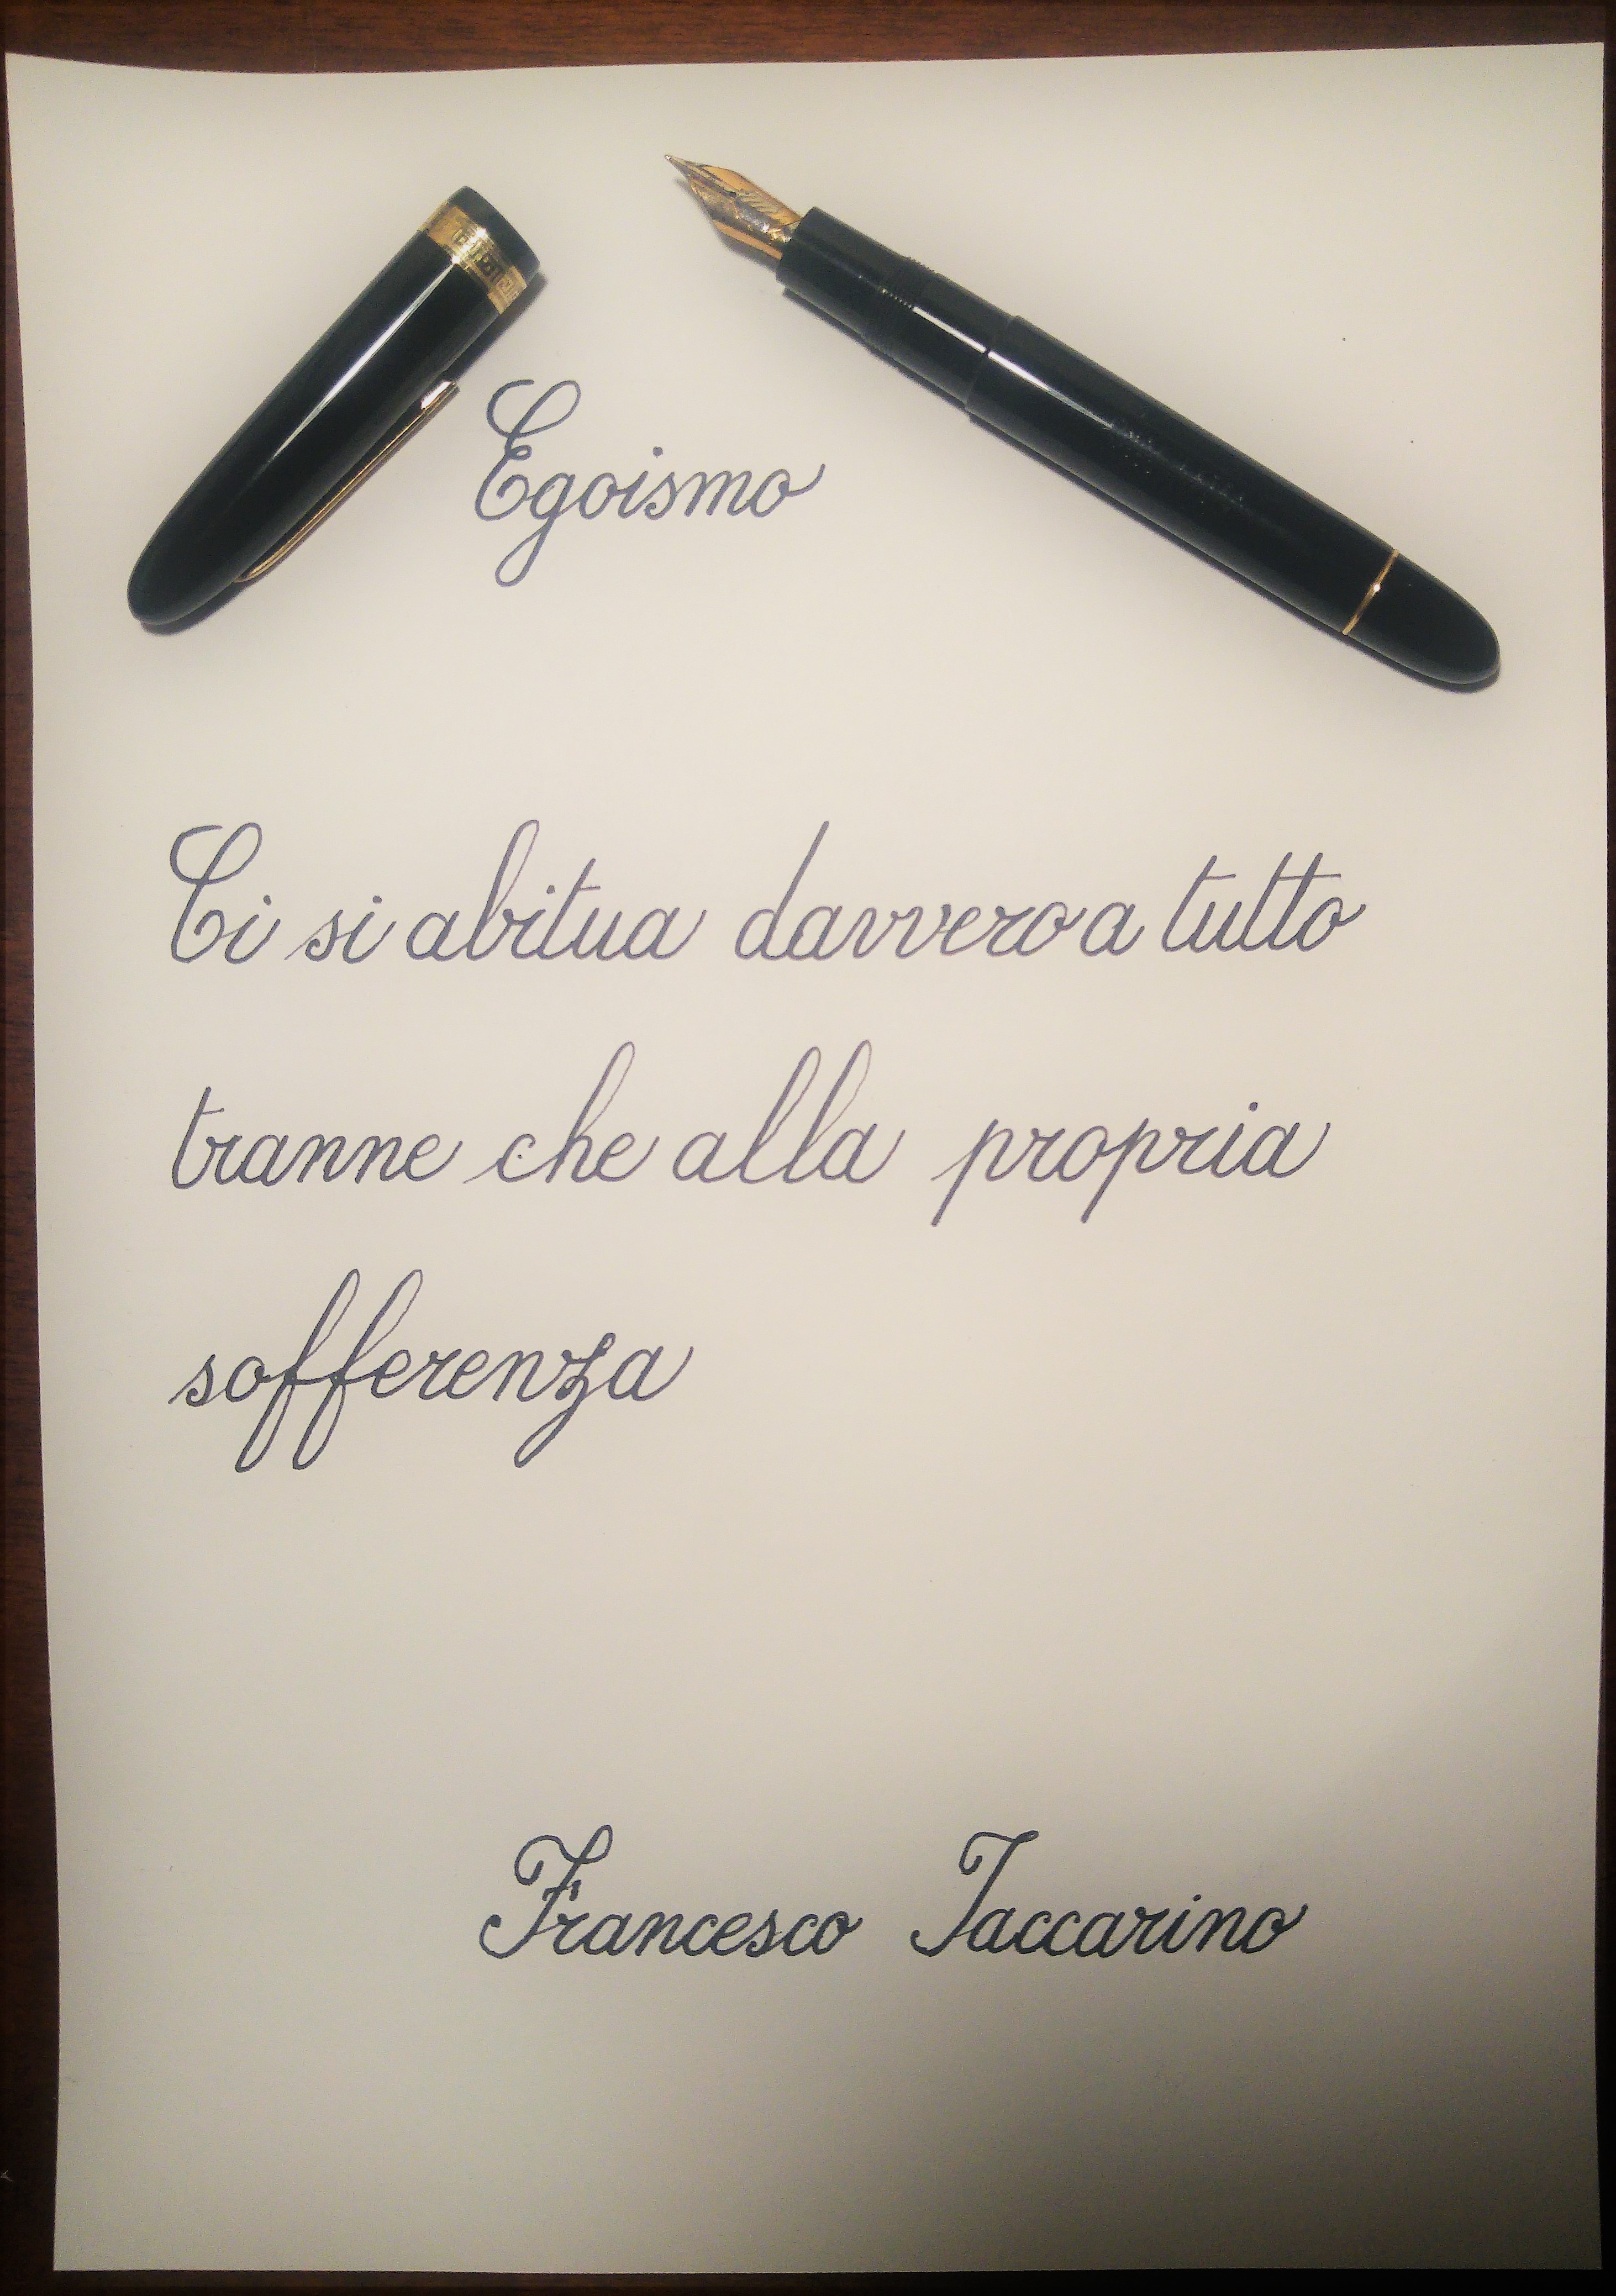 Egoismo
Ci si abitua davvero a tutto
tranne che alla propria
sofferenza
Francesco Iaccarino